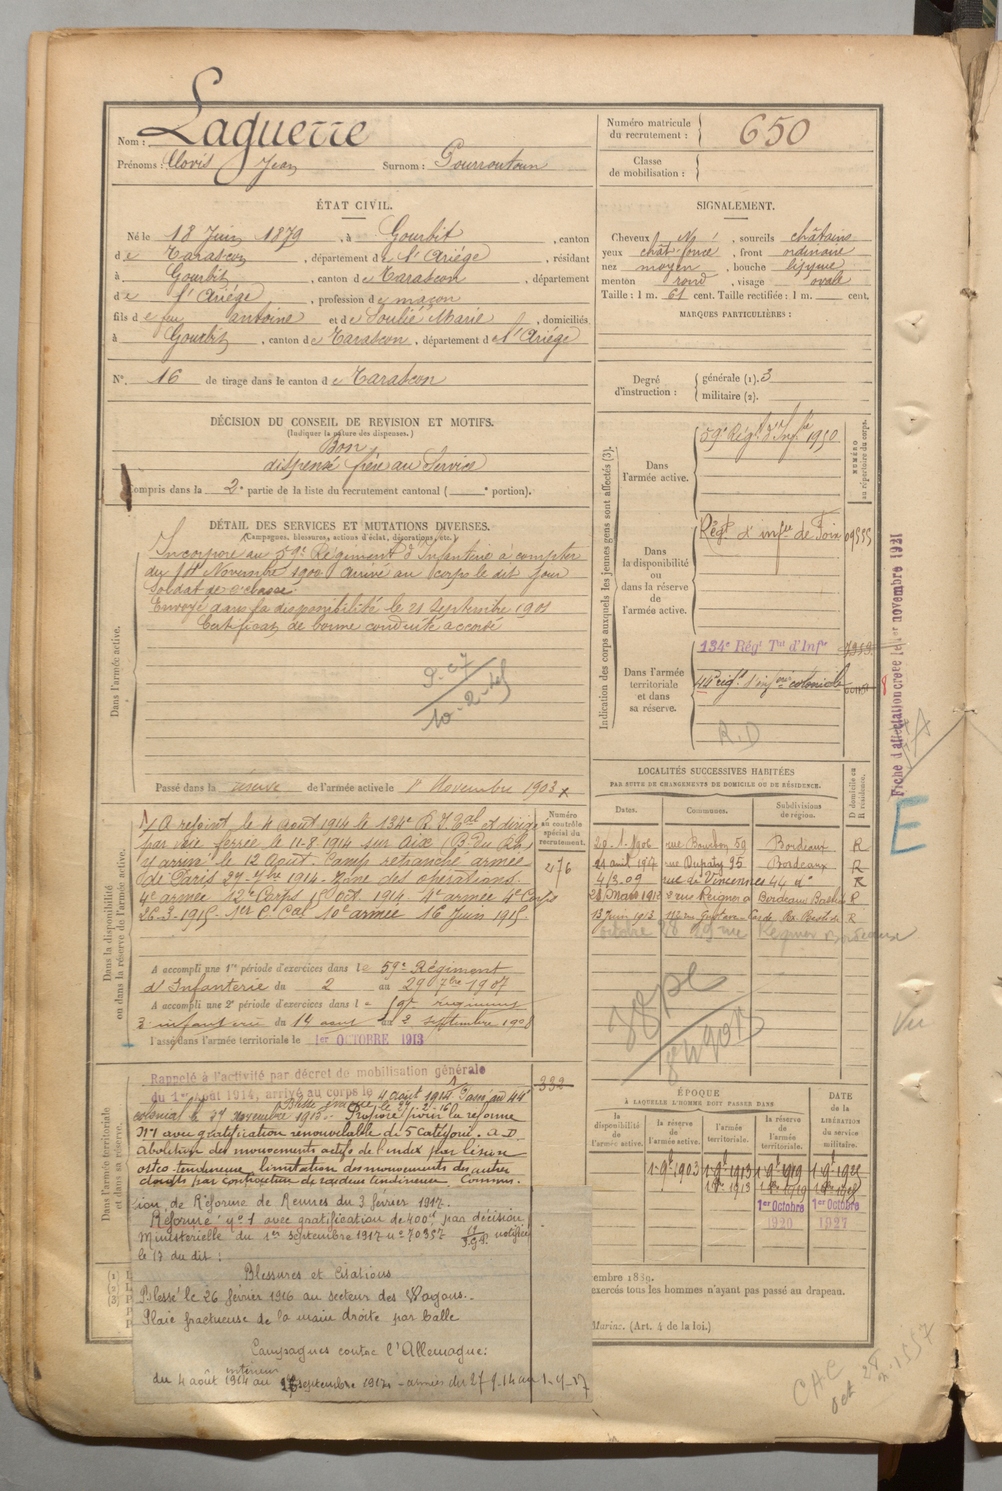 Nom : Laguerre
Prénoms : Clovis Jean Surnom : Pourroutoun
Numéro matricule du recrutement : 650
Classe de mobilisation :
ÉTAT CIVIL.
Né le 18 Juin 1879, à Gourbit, canton
de Tarascon, département de l'Ariége, résidant
à Gourbit, canton de Tarascon, département
de l'Ariége, profession de maçon
fils de feu antoine et de Soulié Marie, domiciliés
à Gourbit, canton de Tarascon, département de l'Ariége
N° 16 de tirage dans le canton de Tarascon
SIGNALEMENT.
Cheveux N, sourcils châtains
yeux chât-foncé, front ordinaire
nez moyen, bouche
menton rond, visage ovale
Taille : 1 m. 61 cent. Taille rectifiée : 1 m. cent.
MARQUES PARTICULIÈRES :
Degré d'instruction : générale (1). 3
militaire (2).
DÉCISION DU CONSEIL DE REVISION ET MOTIFS.
(Indiquer la nature des dispenses.)
Bon
dispensé frère au Service
Compris dans la 2e partie de la liste du recrutement cantonal ( e portion).
DÉTAIL DES SERVICES ET MUTATIONS DIVERSES.
(Campagnes, blessures, actions d'éclat, décorations, etc.)
Dans l'armée active.
Incorporé au 59e Régiment d'Infanterie à compter
du Novembre 1900 Arrivé au corps le dit jour
Soldat de 2e classe
Envoyé dans la disponibilité le 21 Septembre 1901
Certificat de bonne conduite accordé
Passé dans la réserve de l'armée active le 1er Novembre 1903
Indication des corps auxquels les jeunes gens sont affectés (3).
NUMÉRO au répertoire du corps.
Dans l'armée active.
59e Régt d'Infie
Dans la disponibilité ou dans la réserve de l'armée active.
Régt d'infie de Foix 09555
Dans l'armée territoriale et dans sa réserve.
134e Régt Tal d'Infie
44e régt d'infie coloniale
R.D
Fiche d'affectation créée le 1er novembre 1921
E
Vu
Dans la disponibilité ou dans la réserve de l'armée active.
Numéro au contrôle spécial du recrutement.
276
A rejoint le 4 août 1914 le 134e R.I.Tal et dirigé
par voie ferrée le 11-8-1914 sur Aix (B. du Rh.)
y arrivé le 12 Août. Camp retranché armée
de Paris 27-7bre 1914. Zone des opérations.
4e armée 12e Corps 15 oct. 1914. 4e armée 4e Corps
26-3-1915. 1er C. Cal 10e armée 16 Juin 1915.
A accompli une 1re période d'exercices dans le 59e Régiment
d'Infanterie du 2 au 29 7bre 1907
A accompli une 2e période d'exercices dans le régiment
d'infanterie du 14 aout au 3 septembre 1908
Passé dans l'armée territoriale le 1er OCTOBRE 1913
LOCALITÉS SUCCESSIVES HABITÉES
PAR SUITE DE CHANGEMENTS DE DOMICILE OU DE RÉSIDENCE.
Dates. Communes. Subdivisions de région. D domicile ou R résidence.
29.1.1906 rue Bourbon 59 Bordeaux R
avril 1907 rue Dupaty 95 Bordeaux R
4/3.09 rue de Vincennes 44 do R
Mars 1912 rue Reignier Bordeaux Bastide R
13 Juin 1913 R
octobre 28 rue Reignier Bordeaux
Dans l'armée territoriale et dans sa réserve.
Rappelé à l'activité par décret de mobilisation générale
du 1er Août 1914, arrivé au corps le 4 Août 1914. Passé au 44e
colonial le 27 novembre 1915. Proposé pour la réforme
N°1 avec gratification renouvelable de 5e catégorie. A.D.
Abolition des mouvements actifs de l'index par lésion
ostéo-tendineuse, limitation des mouvements des autres
doigts par contraction de raideur tendineuse. Commis-
sion de Réforme de Rennes du 3 février 1917.
Réformé n° 1 avec gratification de 400f par décision
Ministérielle du 1er septembre 1917 n° 70957 notifiée
le 17 du dit :
Blessures et Citations
Blessé le 26 février 1916 au secteur des Wagons.
Plaie fractueuse de la main droite par balle
Campagnes contre l'Allemagne :
intérieur
du 4 août 1914 au septembre 1914 - armées du 27-9-14 au 1-9-17
332
ÉPOQUE
À LAQUELLE L'HOMME DOIT PASSER DANS
la disponibilité de l'armée active. la réserve de l'armée active. l'armée territoriale. la réserve de l'armée territoriale. DATE de la LIBÉRATION du service militaire.
1903 1913 1919
1er Octobre 1er Octobre
1920 1927
embre 1889.
exercés tous les hommes n'ayant pas passé au drapeau.
Marine. (Art. 4 de la loi.)